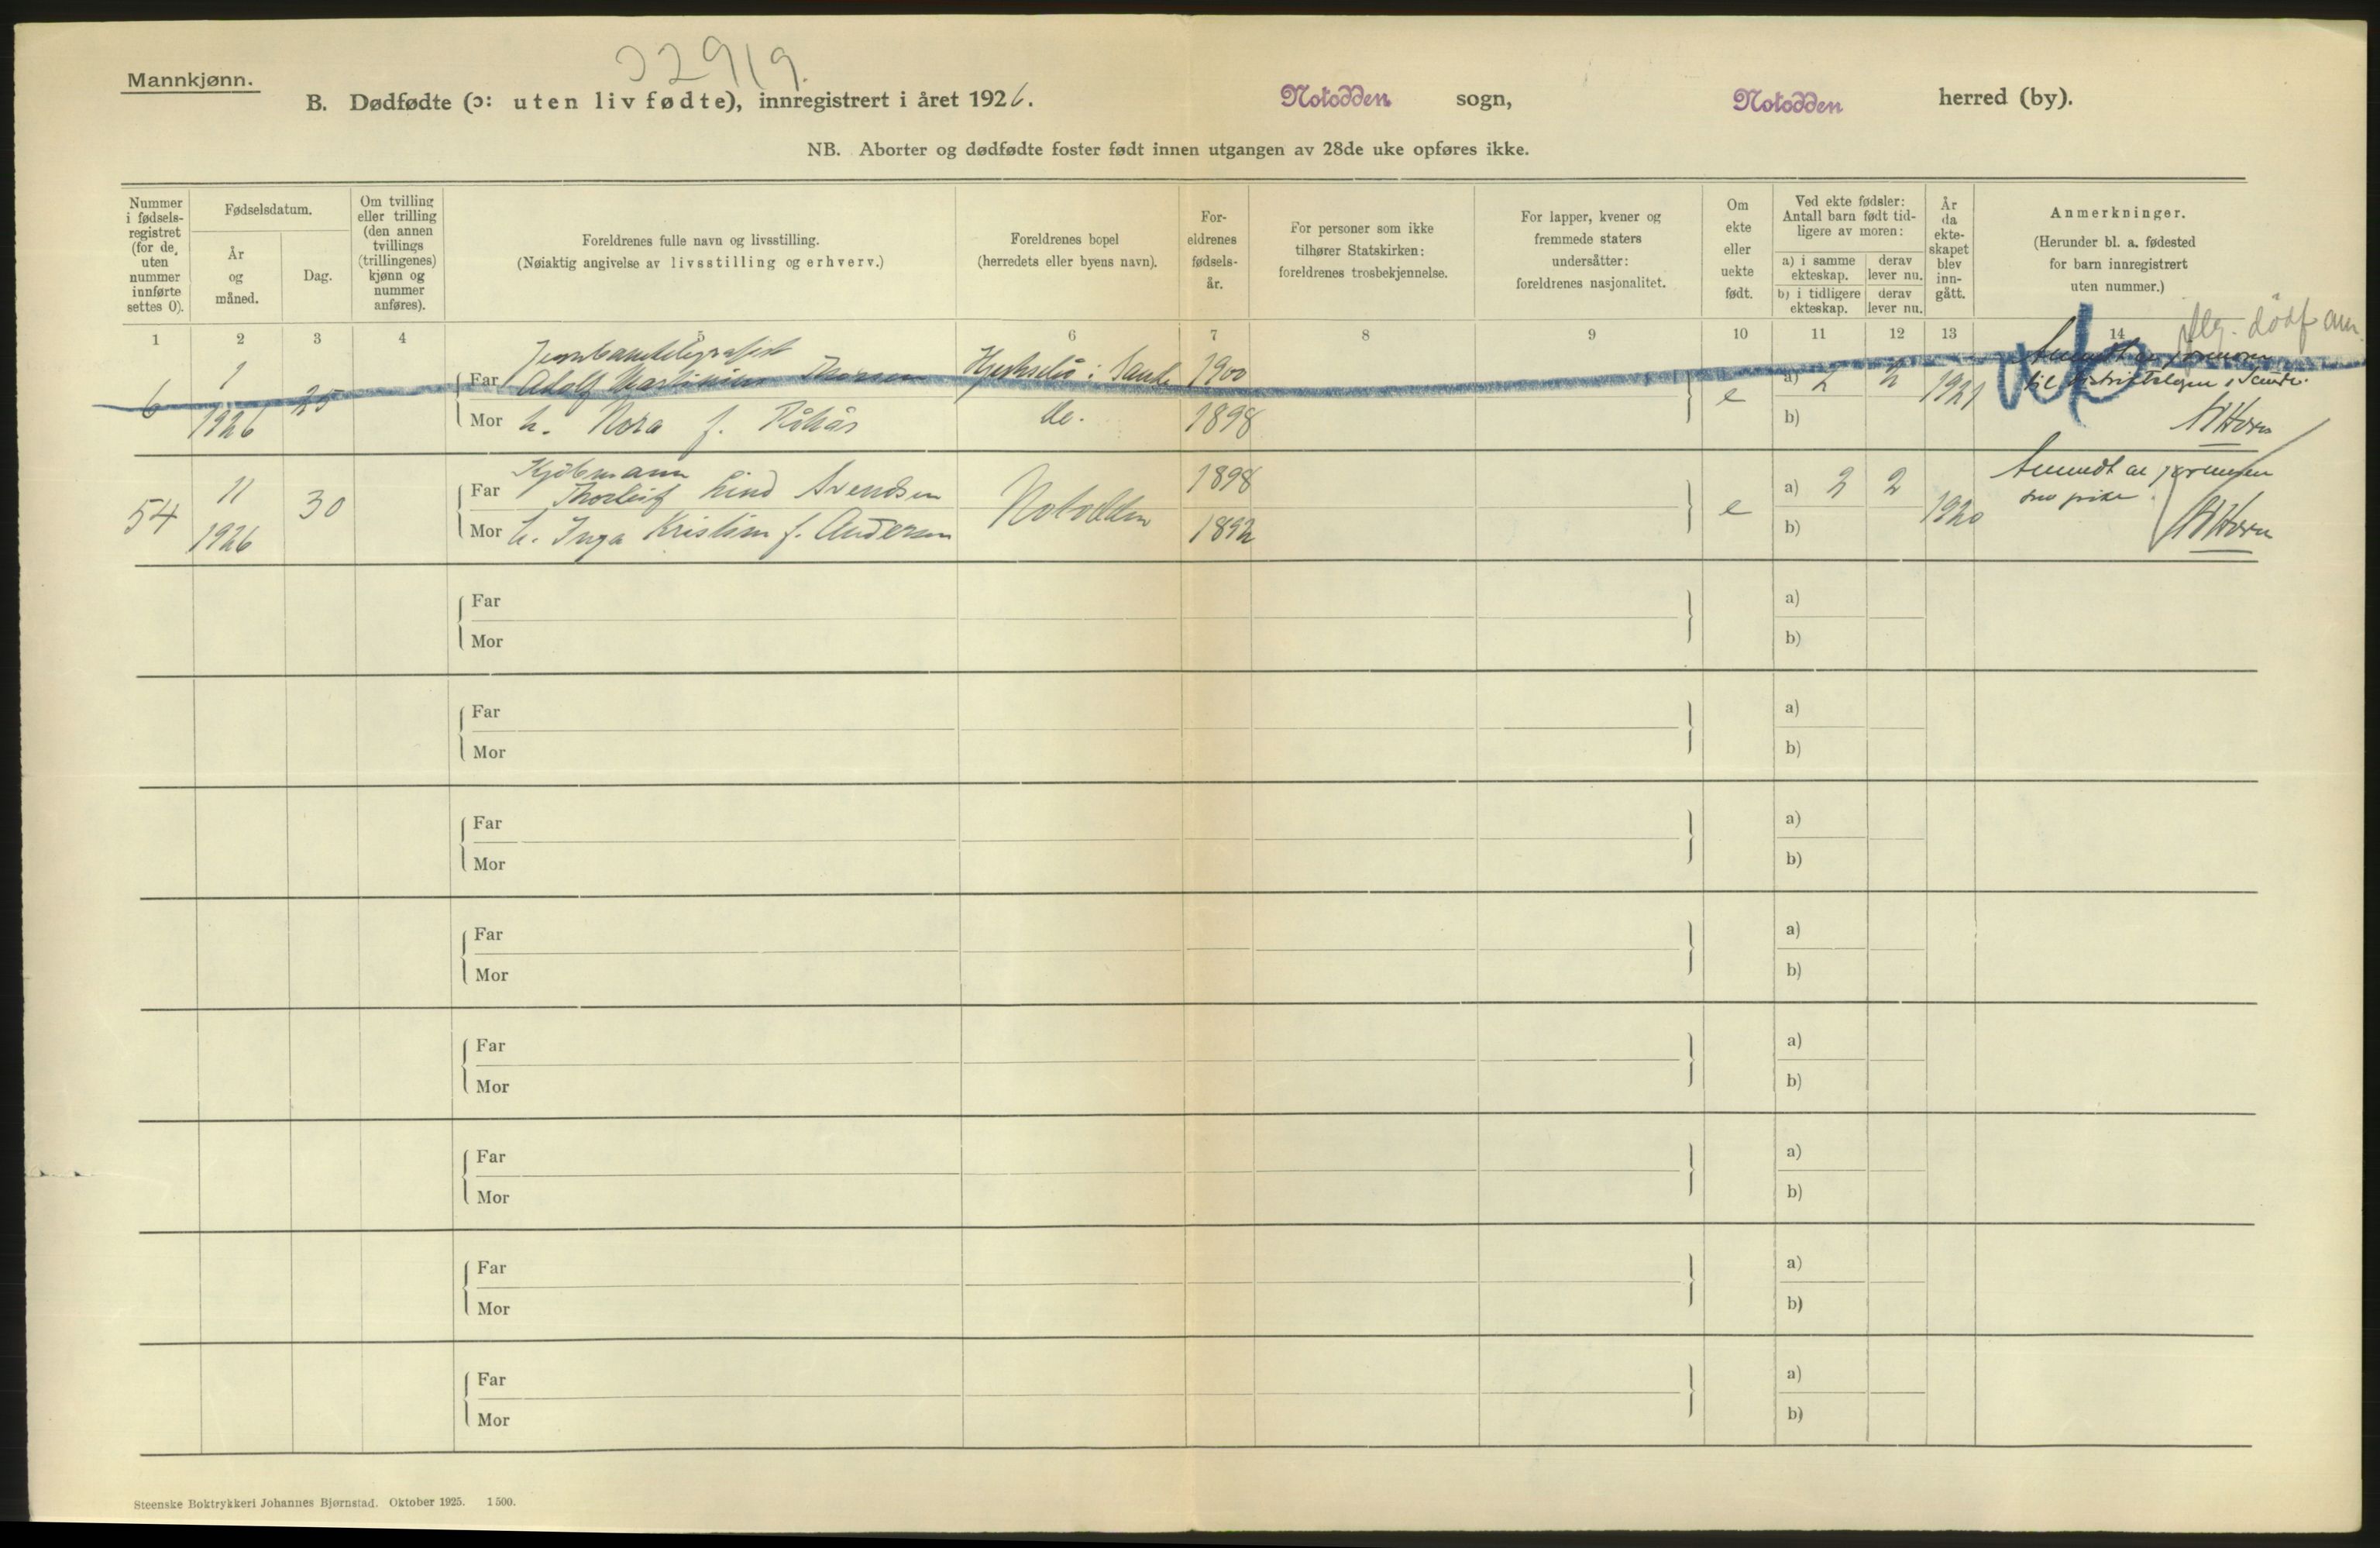 02919.
Mannkjønn.
B. Dødfødte (ɔ: uten liv fødte), innregistrert i året 1926. Notodden sogn, Notodden herred (by).
NB. Aborter og dødfødte foster født innen utgangen av 28de uke opføres ikke.
Nummer i fødsels-registret (for de, uten nummer innførte settes 0).
Fødselsdatum.
År og måned.
Dag.
Om tvilling eller trilling (den annen tvillings (trillingenes) kjønn og nummer anføres).
Foreldrenes fulle navn og livsstilling.
(Nøiaktig angivelse av livsstilling og erhverv.)
Foreldrenes bopel
(herredets eller byens navn).
For-eldrenes fødsels-år.
For personer som ikke tilhører Statskirken: foreldrenes trosbekjennelse.
For lapper, kvener og fremmede staters undersåtter: foreldrenes nasjonalitet.
Om ekte eller uekte født.
Ved ekte fødsler: Antall barn født tid-ligere av moren:
a) i samme ekteskap. derav lever nu.
b) i tidligere ekteskap. derav lever nu.
År da ekte-skapet blev inn-gått.
Anmerkninger.
(Herunder bl. a. fødested for barn innregistrert uten nummer.)
1 2 3 4 5 6 7 8 9 10 11 12 13 14
6 1 1926 25
Far Adolf Martinius Thorsen
Hjuksebø i Sauhe 1900
Mor h. Nora f. Flåtås do. 1898
e a) 2 2 1921
b)
til distriktslegen i Saude.
Horn
54 11 1926 30
Kjøbmann
Far Thorleif Lind Svendsen
Notodden 1898
Mor h. Inga Kristine f. Andersen 1892
e a) 2 2 1920
b)
Horn
Far a)
Mor b)
Far a)
Mor b)
Far a)
Mor b)
Far a)
Mor b)
Far a)
Mor b)
Far a)
Mor b)
Far a)
Mor b)
Far a)
Mor b)
Steenske Boktrykkeri Johannes Bjørnstad. Oktober 1925. 1 500.